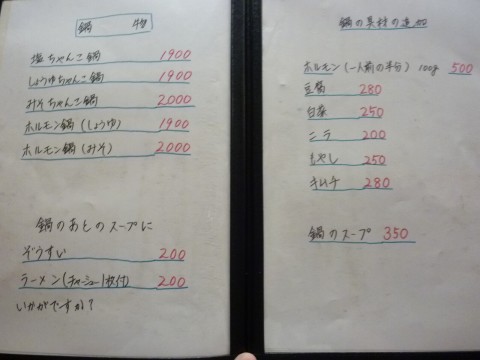 鍋 物
塩ちゃんこ鍋 1900
しょうゆちゃんこ鍋 1900
みそちゃんこ鍋 2000
ホルモン鍋(しょうゆ) 1900
ホルモン鍋(みそ) 2000
鍋のあとのスープに
ぞうすい 200
ラーメン(チャーシュー1枚付) 200
いかがですか?
鍋の具材の追加
ホルモン(一人前の半分) 100g 500
豆腐 280
白菜 250
ニラ 200
もやし 250
キムチ 280
鍋のスープ 350